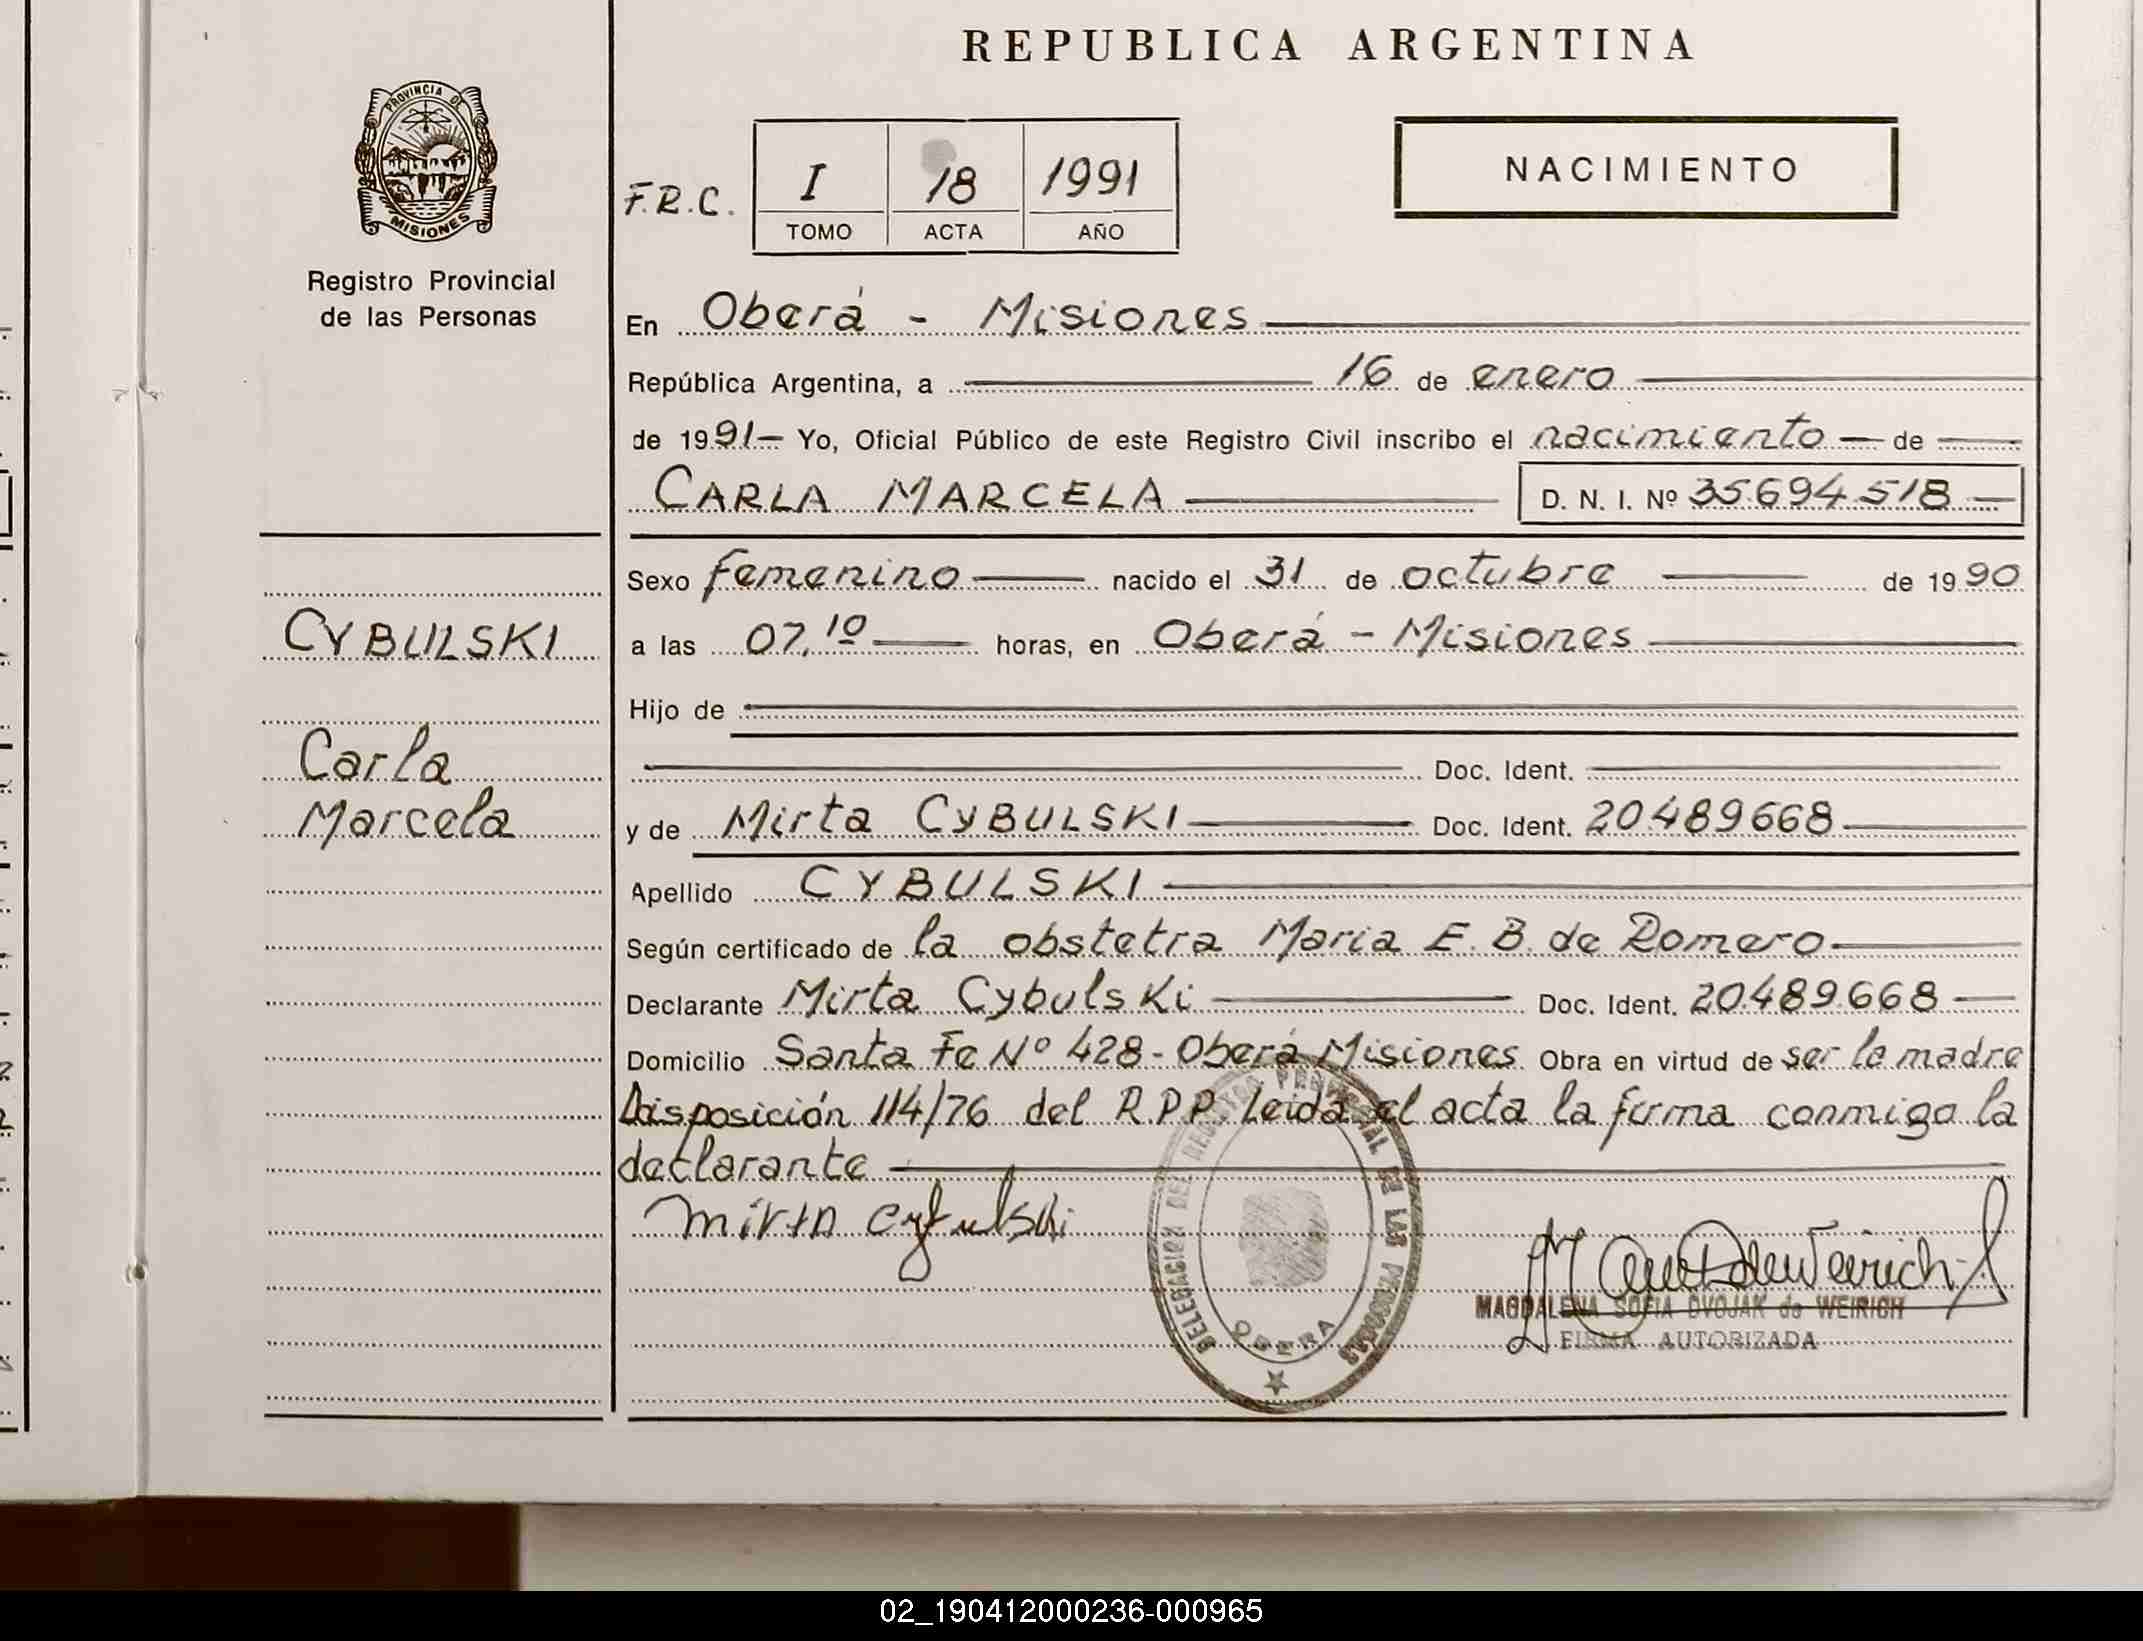 REPUBLICA ARGENTINA
PROVINCIA DE
MISIONES
Registro Provincial
de las Personas
F.R.C. I 18 1991
TOMO ACTA AÑO
NACIMIENTO
En Oberá - Misiones
República Argentina, a 16 de enero
de 1991 Yo, Oficial Público de este Registro Civil inscribo el nacimiento de
CARLA MARCELA D. N. I. Nº 35.694.518
Sexo femenino nacido el 31 de octubre de 1990
a las 07,10 horas, en Oberá - Misiones
Hijo de
Doc. Ident.
y de Mirta CYBULSKI Doc. Ident. 20.489668
Apellido CYBULSKI
Según certificado de la obstetra Maria E. B. de Romero
Declarante Mirta Cybulski Doc. Ident. 20.489.668
Domicilio Santa Fe Nº 428 - Oberá Misiones Obra en virtud de ser la madre
Disposición 114/76 del R.P.P. Leida el acta la firma conmigo la
declarante
Mirta Cybulski
CYBULSKI
Carla
Marcela
DELEGACION DEL REGISTRO PROVINCIAL DE LAS PERSONAS
OBERA
MAGDALENA SOFIA DVOJAK de WEIRICH
FIRMA AUTORIZADA
02_190412000236-000965